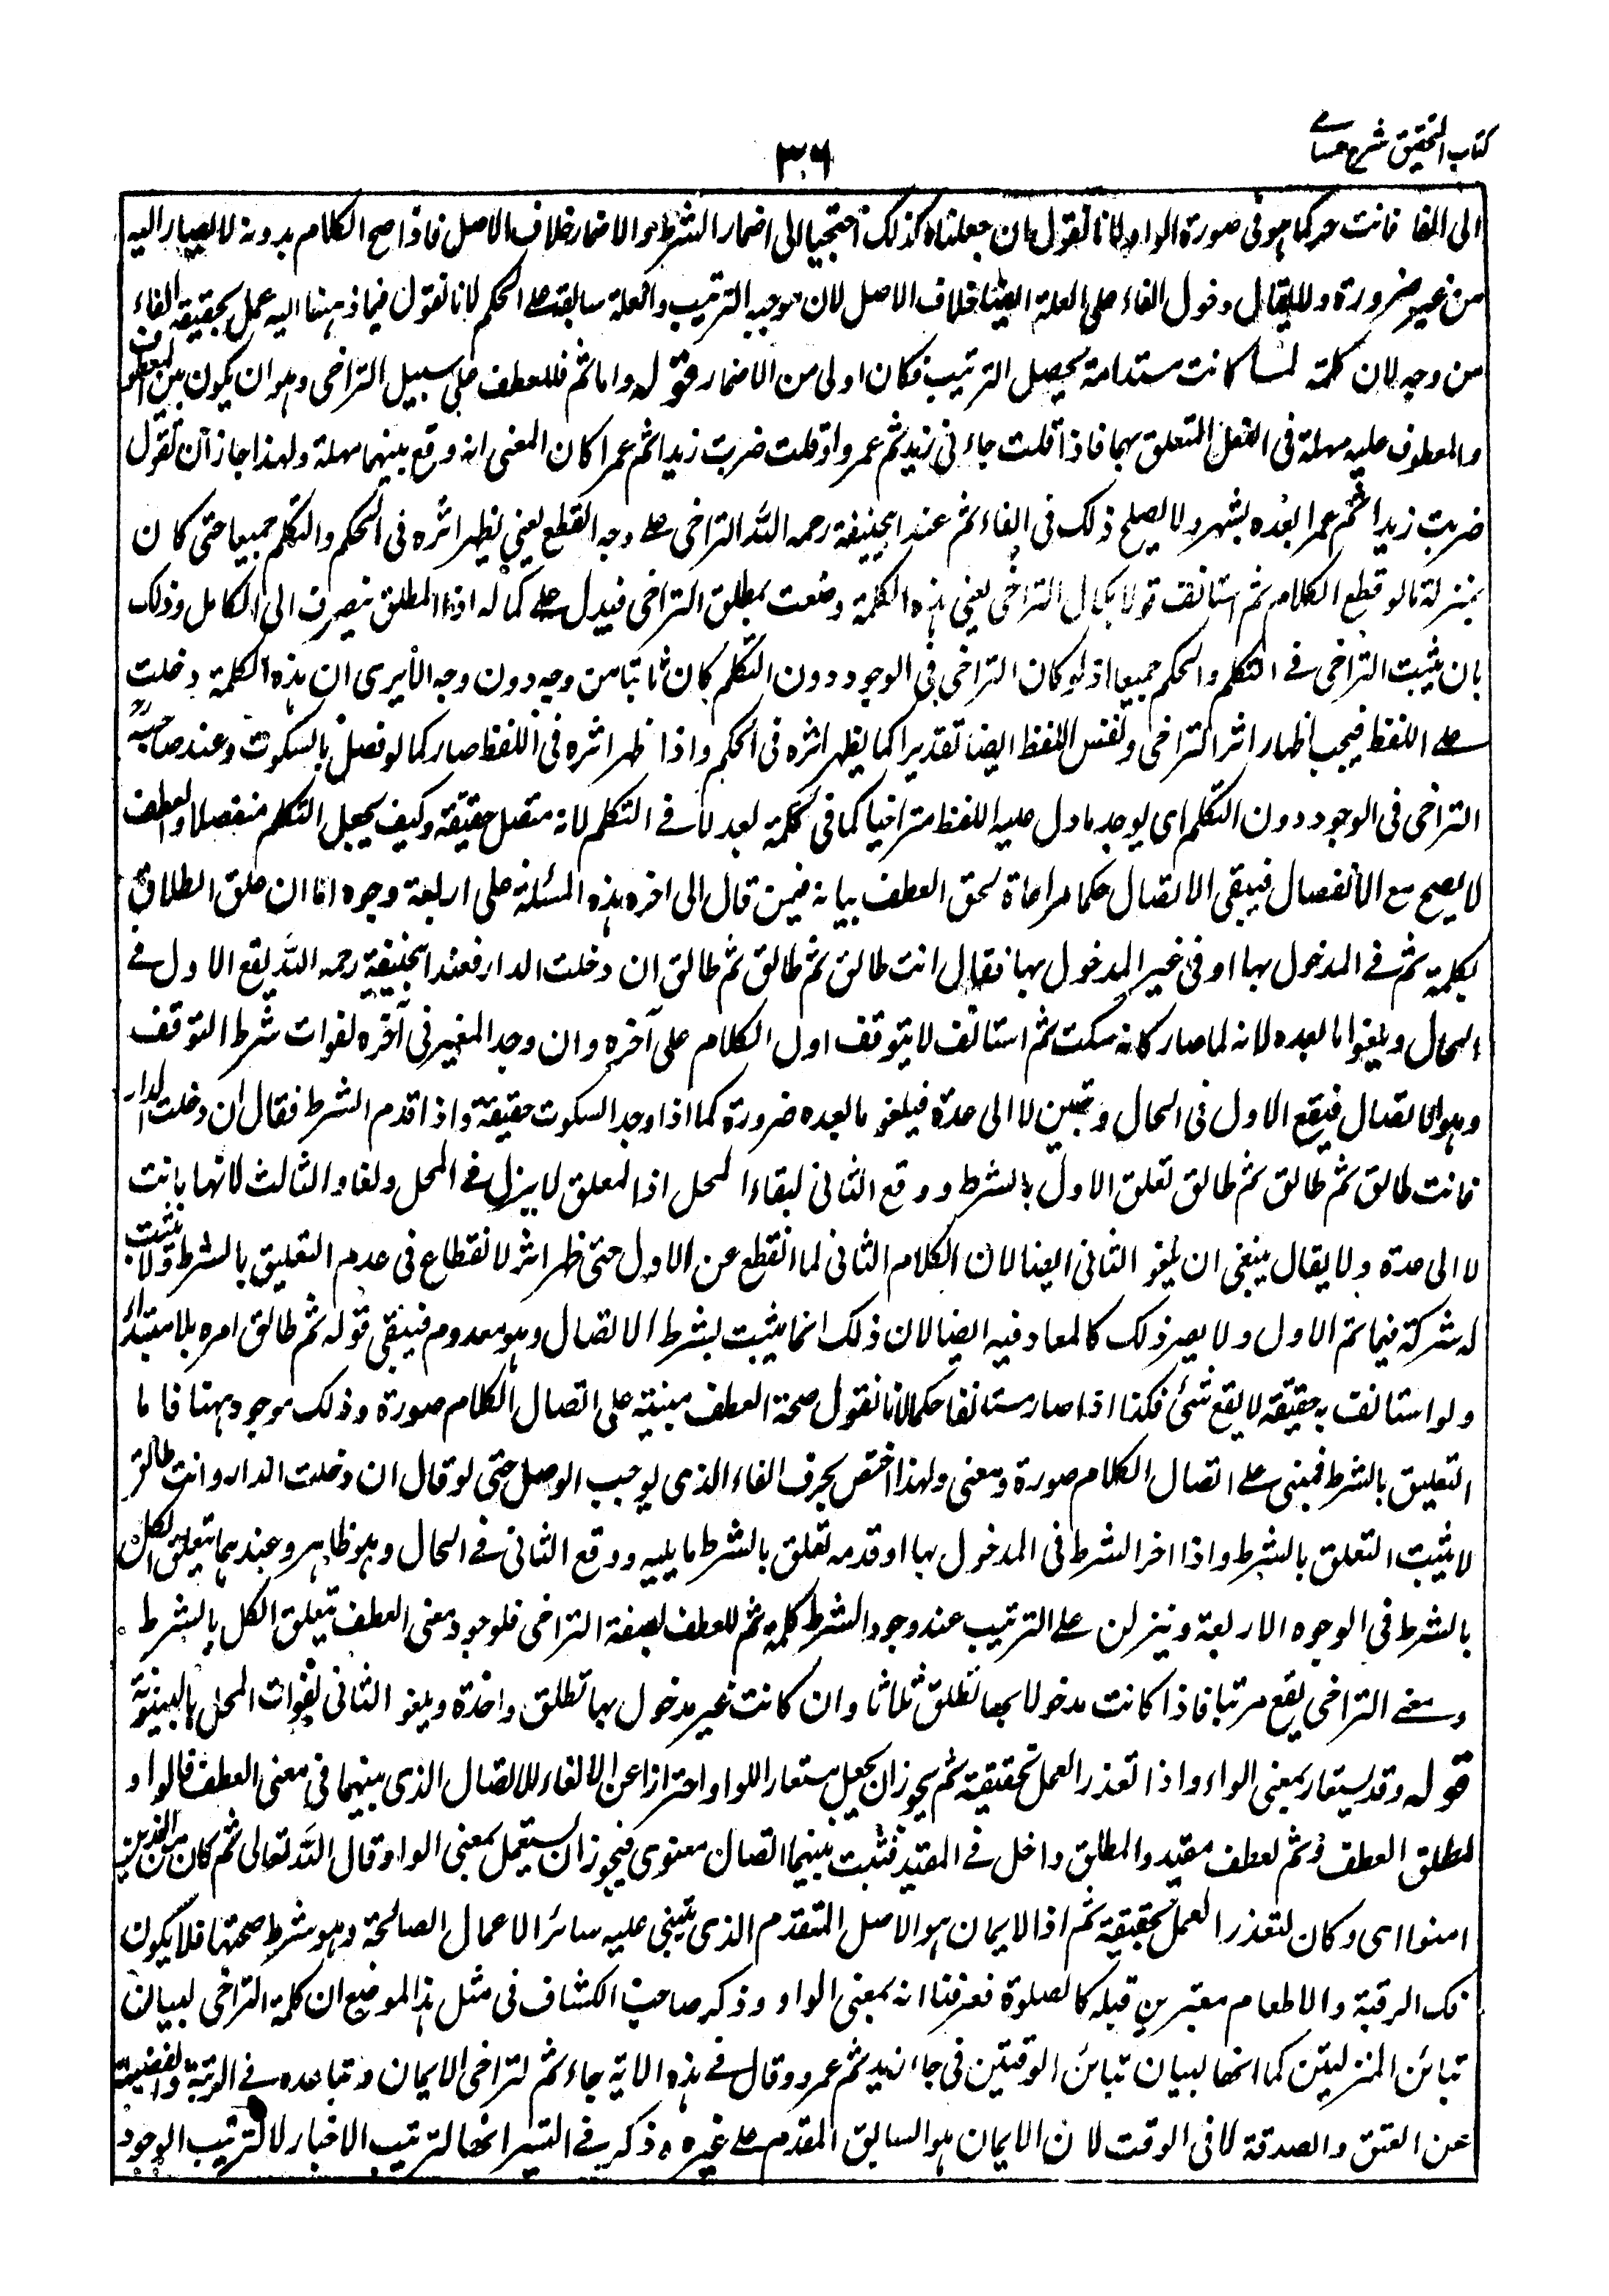 كتاب التحقيق شرح حسامى
٣٠٦
الى الفا فانت حر كما هو فى صورة الواو لانا نقول ان جعلناه كذلك احتجيا الى اضمار الشرط والاضمار خلاف الاصل فاذا صح الكلام بدونه لا يصار اليه
من غير ضرورة ولا يقال دخول الفاء على العلة ايضا خلاف الاصل لان موجبه الترتيب والعلة سابقة على الحكم لانا نقول فيما ذهبنا اليه عمل بحقيقة الفاء
من وجه لان كلمة لما كانت مستدامة يحصل الترتيب فكان اولى من الاضمار قوله واما ثم فللعطف على سبيل التراخى وهو ان يكون بين المعطوف
والمعطوف عليه مهلة فى الفعل المتعلق بهما فاذا قلت جاءنى زيد ثم عمرو او قلت ضربت زيدا ثم عمرا كان المعنى انه وقع بينهما مهلة ولهذا جاز ان تقول
ضربت زيدا ثم عمرا بعده بشهر ولا يصلح ذلك فى الفاء ثم عند ابيحنيفة رحمه الله التراخى على وجه القطع يعنى يظهر اثره فى الحكم والتكلم جميعا حتى كان
بمنزلة ما لو قطع الكلام ثم استانف قولا بكمال التراخى يعنى هذه الكلمة وضعت لمطلق التراخى فيدل على كماله اذ المطلق ينصرف الى الكامل وذلك
بان يثبت التراخى فى التكلم والحكم جميعا اذ لو كان التراخى فى الوجود دون التكلم كان ثابتا من وجه دون وجه الا يرى ان هذه الكلمة دخلت
على اللفظ فيجب اظهار اثر التراخى ولنفس اللفظ ايضا تقديرا كما يظهر اثره فى الحكم واذا ظهر اثره فى اللفظ صار كما لو فصل بالسكوت وعند صاحبيه
التراخى فى الوجود دون التكلم اى يوجد ما دل عليه اللفظ متراخيا كما فى كلمة بعد لا فى التكلم لانه متصل حقيقة وكيف يجعل التكلم منفصلا والعطف
لا يصح مع الانفصال فيبقى الاتصال حكما مراعاة لحق العطف بيانه فيمن قال الى اخره هذه المسئلة على اربعة وجوه اما ان علق الطلاق
بكلمة ثم فى المدخول بها او فى غير المدخول بها فقال انت طالق ثم طالق ثم طالق ان دخلت الدار فعند ابيحنيفة رحمه الله يقع الاول فى
الحال ويلغوا ما بعده لانه لما صار كانه سكت ثم استانف لا يتوقف اول الكلام على آخره وان وجد المغير فى آخره لفوات شرط التوقف
وهو الاتصال فيقع الاول فى الحال وتبين لا الى عدة فيلغو ما بعده ضرورة كما اذا وجد السكوت حقيقة واذا قدم الشرط فقال ان دخلت الدار
فانت طالق ثم طالق ثم طالق تعلق الاول بالشرط ووقع الثانى لبقاء المحل اذ المعلق لا ينزل فى المحل ولغا والثالث لانها بانت
لا الى عدة ولا يقال ينبغى ان يلغو الثانى ايضا لان الكلام الثانى لما انقطع عن الاول حتى ظهر اثر الانقطاع فى عدم التعليق بالشرط ولا يثبت
له شركة فيما تم الاول ولا يصير ذلك كالمعاد فيه ايضا لان ذلك انما يثبت بشرط الاتصال وهو معدوم فيبقى قوله ثم طالق امره بلا مبتدأ
ولو استانف به حقيقة لا يقع شئ فكذا اذا صار مستانفا حكما لانا نقول صحة العطف مبنية على اتصال الكلام صورة وذلك موجود ههنا فاما
التعليق بالشرط فمبنى على اتصال الكلام صورة ومعنى ولهذا اختص بحرف الفاء الذى يوجب الوصل حتى لو قال ان دخلت الدار وانت طالق
لا يثبت التعلق بالشرط واذا اخر الشرط فى المدخول بها او قدمه تعلق بالشرط ما يليه ووقع الثانى فى الحال وهو ظاهر وعندهما يتعلق الكل
بالشرط فى الوجوه الاربعة وينزلن على الترتيب عند وجود الشرط كلمة ثم للعطف بصفة التراخى فلوجود معنى العطف يتعلق الكل بالشرط
ومعنى التراخى يقع مرتبا فاذا كانت مدخولا بها تطلق ثلاثا وان كانت غير مدخول بها تطلق واحدة ويلغو الثانى لفوات المحل بالبينونة
قوله وقد يستعار بمعنى الواو واذا تعذر العمل بحقيقة ثم يجوز ان يجعل مستعارا للواو احترازا عن الالغاء للاتصال الذى بينهما فى معنى العطف فالواو
لمطلق العطف وثم لعطف مقيد والمطلق داخل فى المقيد فثبت بينهما اتصال معنوى فيجوز ان يستعمل بمعنى الواو قال الله تعالى ثم كان من الذين
امنوا اى وكان لتعذر العمل بحقيقة ثم اذ الايمان هو الاصل المتقدم الذى يبتنى عليه سائر الاعمال الصالحة وهو شرط صحتها فلا يكون
فك الرقبة والاطعام معتبرين قبله كالصلوة فعرفنا انه بمعنى الواو وذكر صاحب الكشاف فى مثل هذا الموضع ان كلمة التراخى لبيان
تبائن المنزلتين كما انها لبيان تبائن الوقتين فى جاء زيد ثم عمرو وقال فى هذه الاية جاء ثم لتراخى الايمان وتباعده فى الرتبة والفضيلة
عن العتق والصدقة لا فى الوقت لان الايمان هو السابق المقدم على غيره وذكر فى التيسير انها لترتيب الاخبار لا لترتيب الوجود